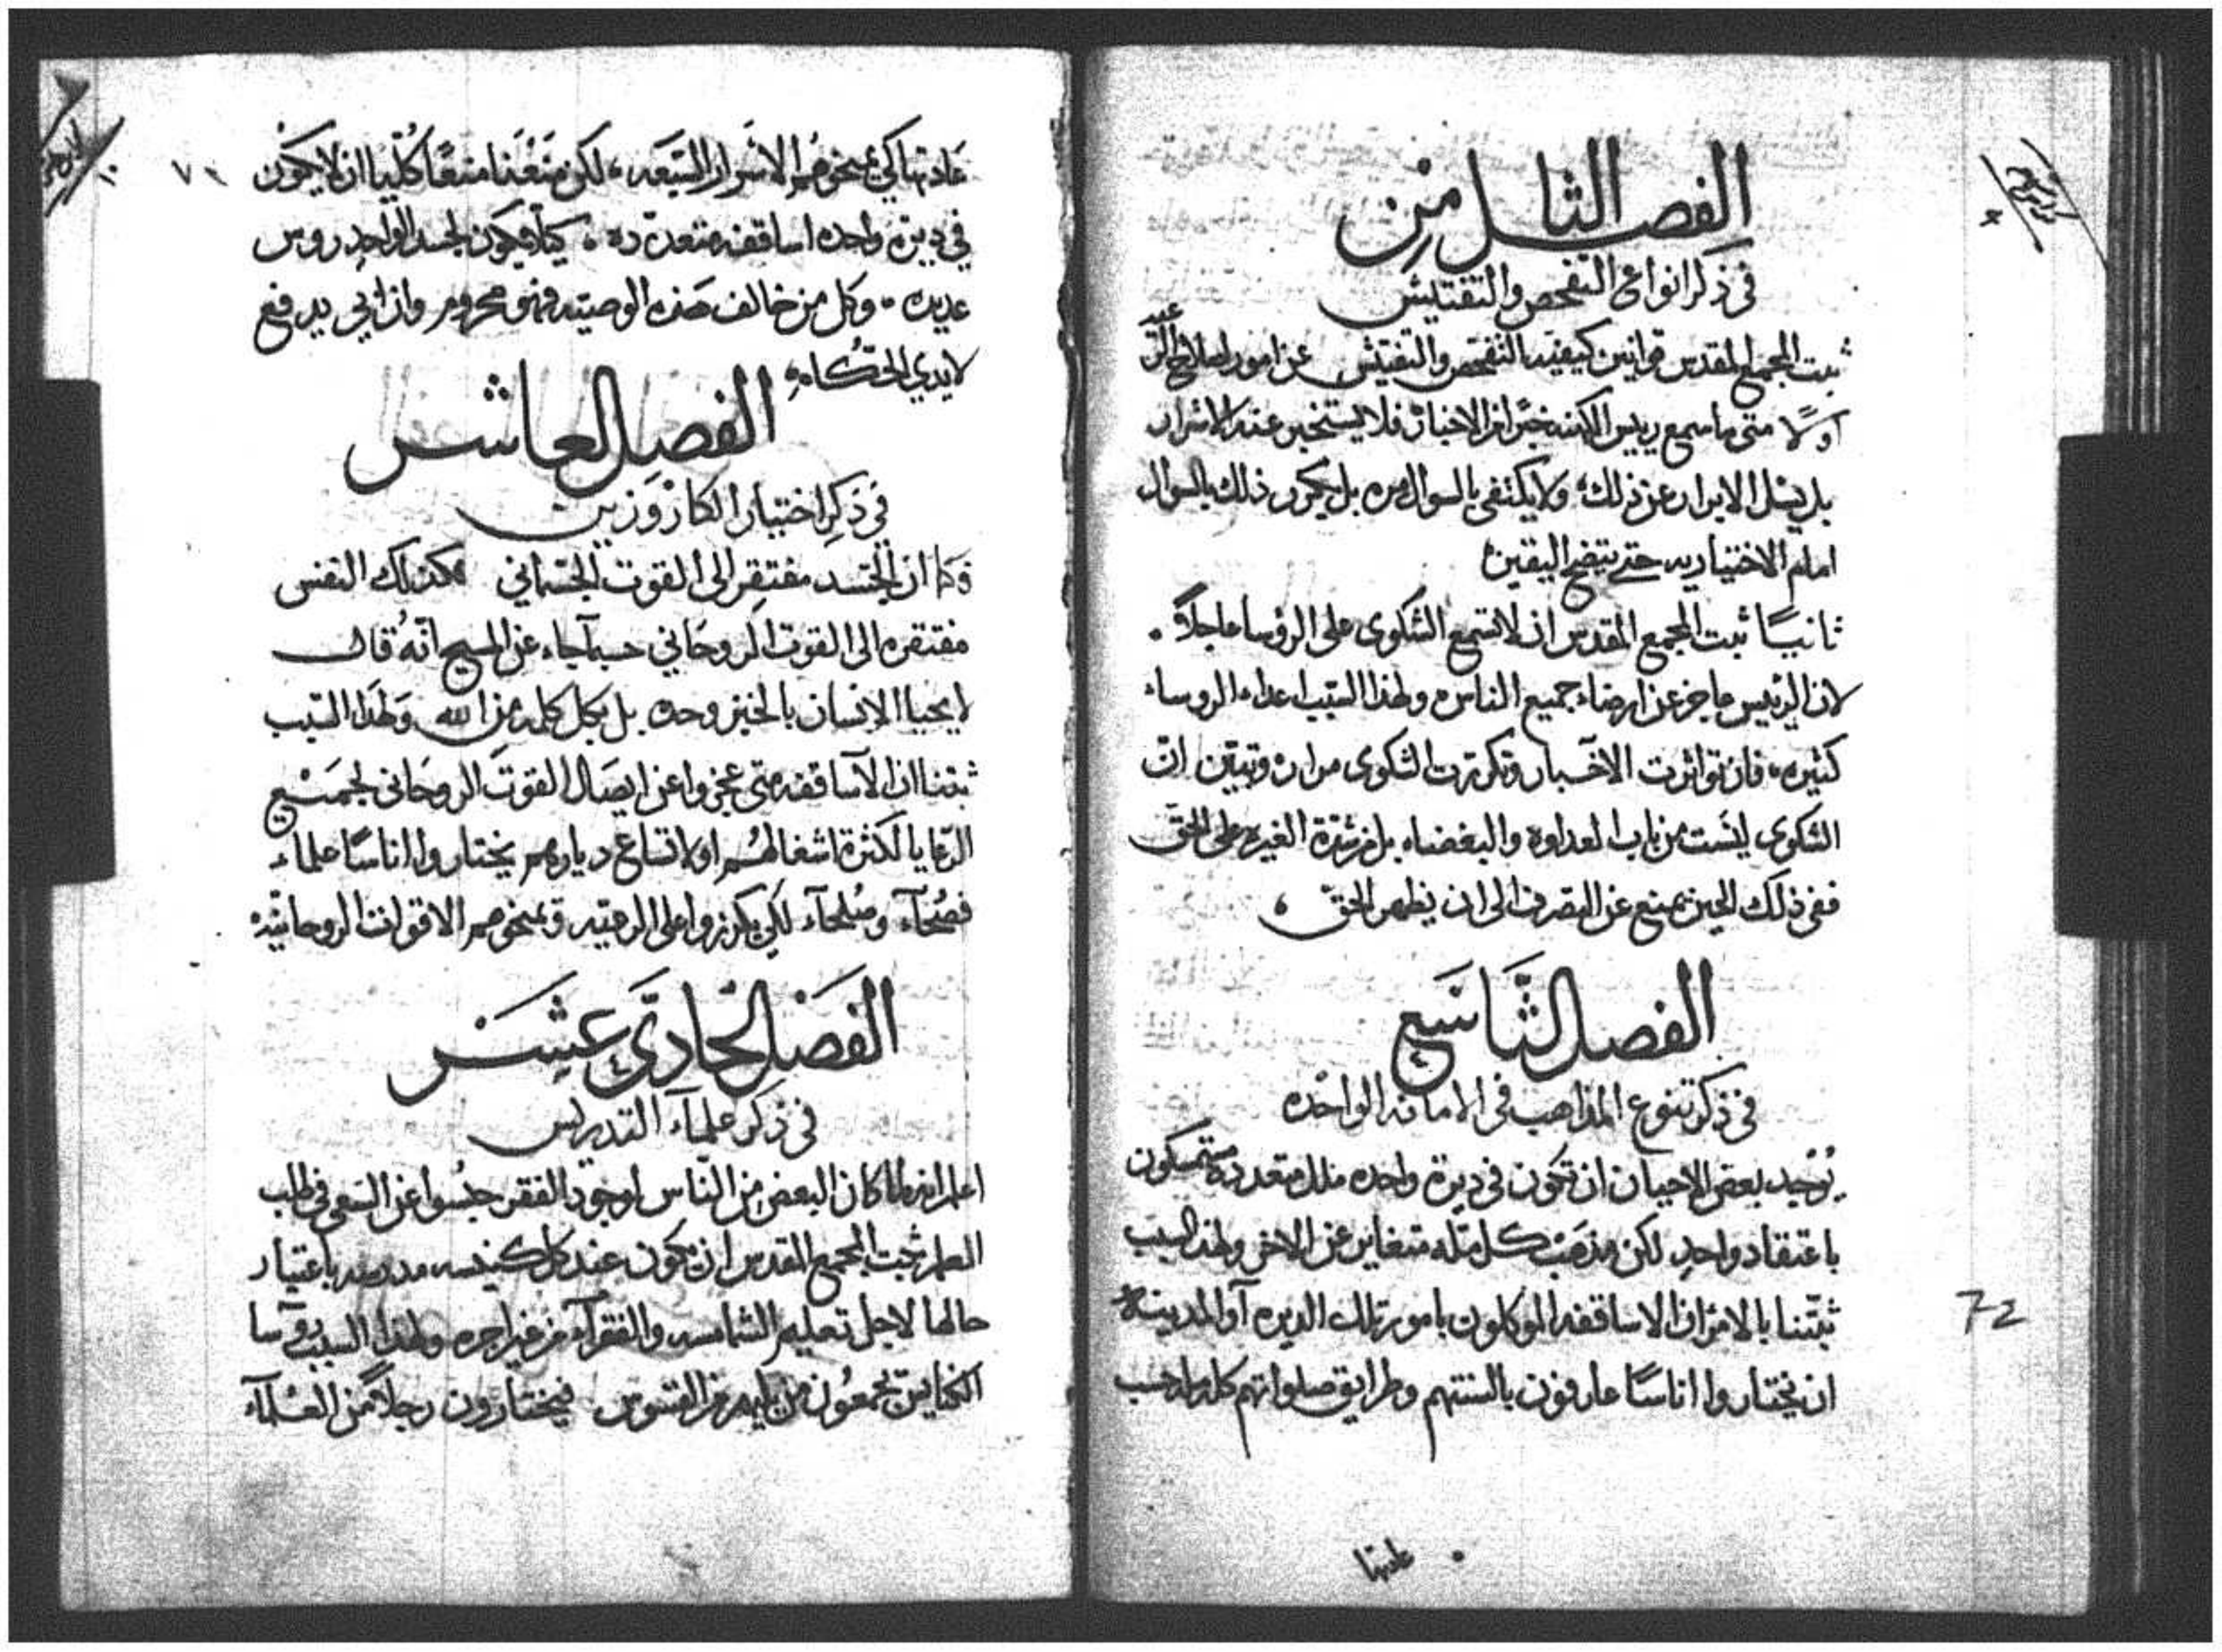 الفصل الثامن
في ذكر انواع التفحص والتفتيش
ثبت المجمع المقدس قوانين كيفية التفحص والتفتيش عن امور اصلاح الرعية
اولًا متى ما سمع رييس الكهنه خبرًا من الاخبار فلا يستخبر عنه الاشرار
بل يسل الابرار عن ذلك، ولا يكتفي بالسوال مره بل يكرر ذلك بالسوال
امام الاختياريه حتى يتضح اليقين
ثانيًا ثبت المجمع المقدس ان لا تستمع الشكوى على الرؤسا عاجلاً.
لان الرئيس عاجز عن ارضاء جميع الناس ولهذا السبب اعداء الروساء
كثيره، فان تواثرت الاخبار وتكررت الشكوى مرارًا وتبين ان
الشكوى ليست من باب العداوه والبغضاء بل من شدة الغيره على الحق
ففي ذلك الحين يمنع عن التصرف الى ان يظهر الحق،
الفصل التاسع
في ذكر تنوع المذاهب في الامانه الواحده
يوجد بعض الاحيان ان تكون في ديرة واحده ملل متعدده متمسكون
باعتقاد واحدٍ لكن مذهب كل مله متغاير عن الاخر ولهذا السبب
ثبتنا بالالزام ان الاساقفه الموكلون بامور تلك الديره آو المدينه
ان يختاروا اناسًا عارفون بالسنتهم وطرايق صلواتهم كل مله حسب
عادتها
72
٧٠
عادتها كي يمنحوهم الاسرار السبعه، لكن منعنا منعًا كُليًا ان لا يكون
في ديرة واحده اساقفه متعدده. كيلا يكون لجسد الواحد روس
عديده. وكل من خالف هذه الوصيه فهو محروم وان ابي يدفع
لايدي الحكام
الفصل العاشر
في ذكر اختيار الكاروزين
وكما ان الجسد مفتقر الى القوت الجسماني كذلك النفس
مفتقره الى القوت الروحاني حسبما جاء عن المسيح انه قال
لا يحيا الانسان بالخبز وحده بل بكل كلمه من الله ولهذا السبب
ثبتنا ان الآساقفه متى عجزوا عن ايصال القوت الروحاني لجميع
الرعايا لكثرة اشغالهم او لاتساع ديارهم يختاروا اناسًا علماء
فصحآء وصلحآء لكي يكرزوا على الرعيه ويمنحوهم الاقوات الروحانيه
الفصل الحادي عشر
في ذكر علمآء التدريس
اعلم انه لما كان البعض من الناس لوجود الفقر حبسوا عن السعي في طلب
العلم ثبت المجمع المقدس ان يكون عند كل كنيسه مدرسه باعتبار
حالها لاجل تعليم الشمامسه والفقرآء من غير اجره ولهذا السبب روآسا
الكنايس يجمعون من يليهم من القسوس فيختارون رجلاً من العلمآء